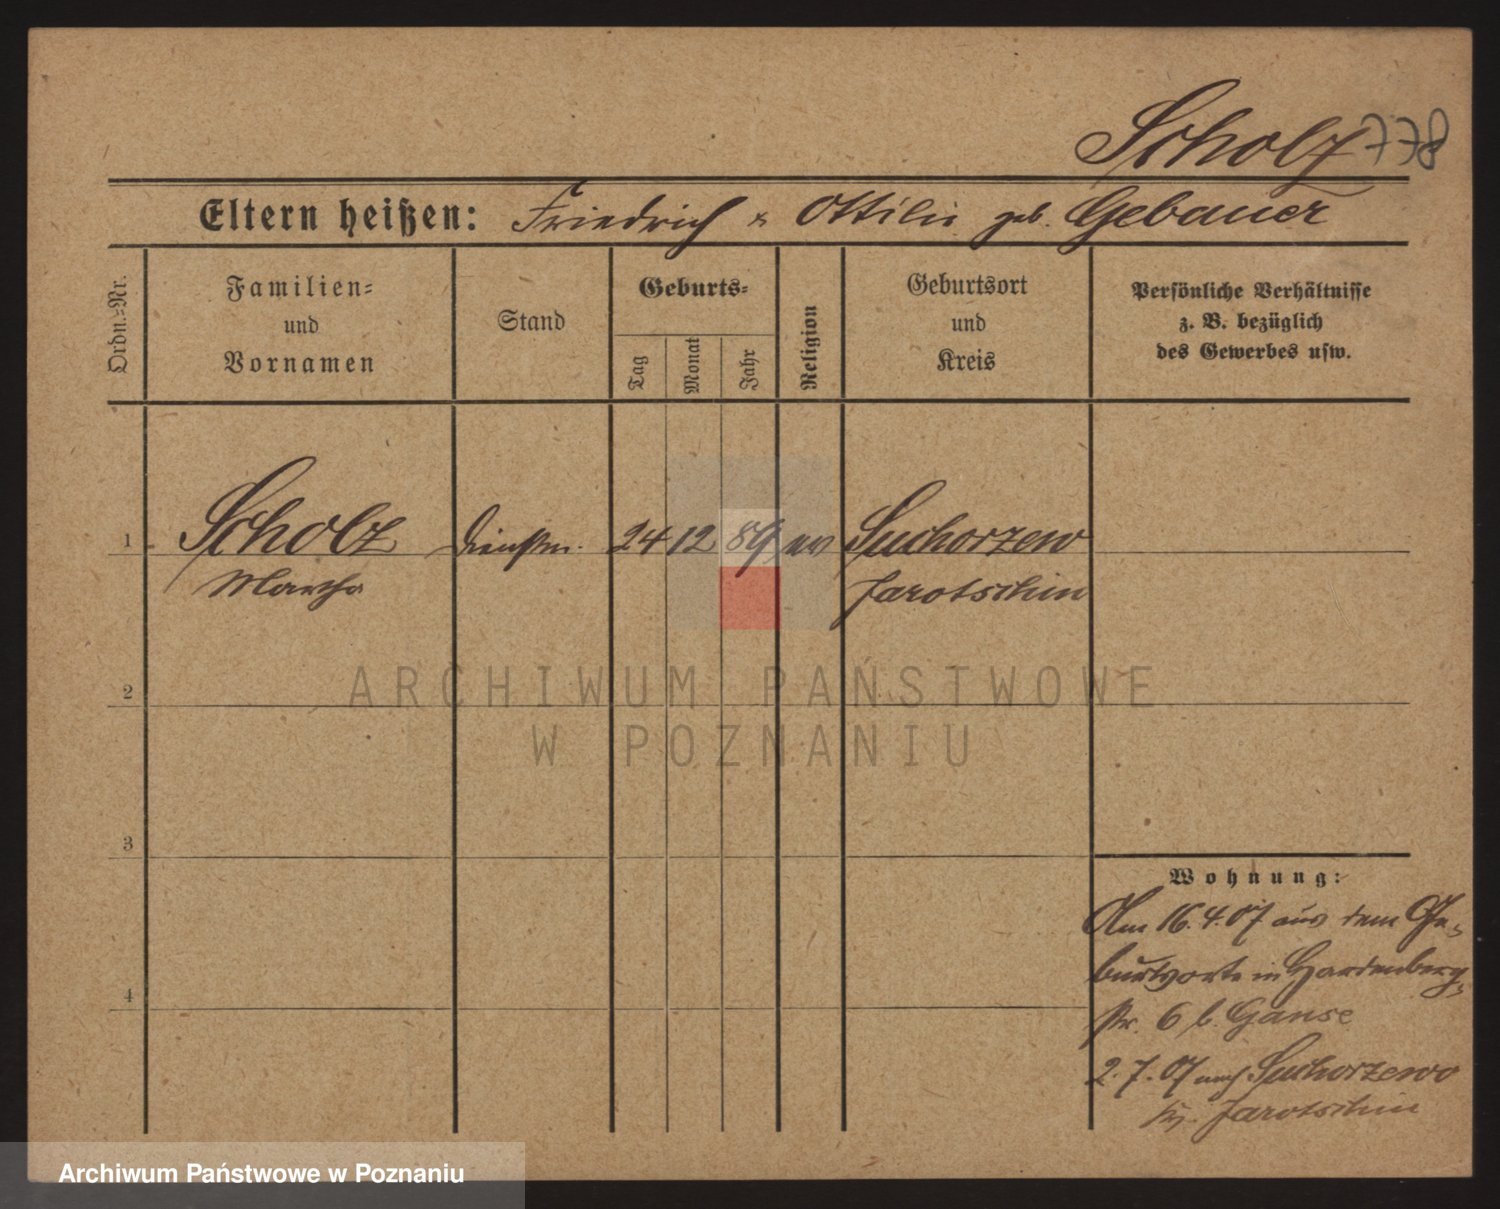 Scholz 778
Eltern heißen: Friedrich & Ottilie geb. Gebauer
Ordn.-Nr.
Familien-
und
Vornamen
Stand
Geburts-
Tag
Monat
Jahr
Religion
Geburtsort
und
Kreis
Persönliche Verhältnisse
z. B. bezüglich
des Gewerbes usw.
1 Scholz Dienstm. 24 12 89 ev Suchorzew
Martha Jarotschin
2
3
4
Wohnung:
Am 16.4.07 aus dem Ge-
burtsorte in Hardenberg-
str. 6 b. Ganse
2.7.07 nach Suchorzewo
Kr. Jarotschin
ARCHIWUM PAŃSTWOWE
W POZNANIU
Archiwum Państwowe w Poznaniu